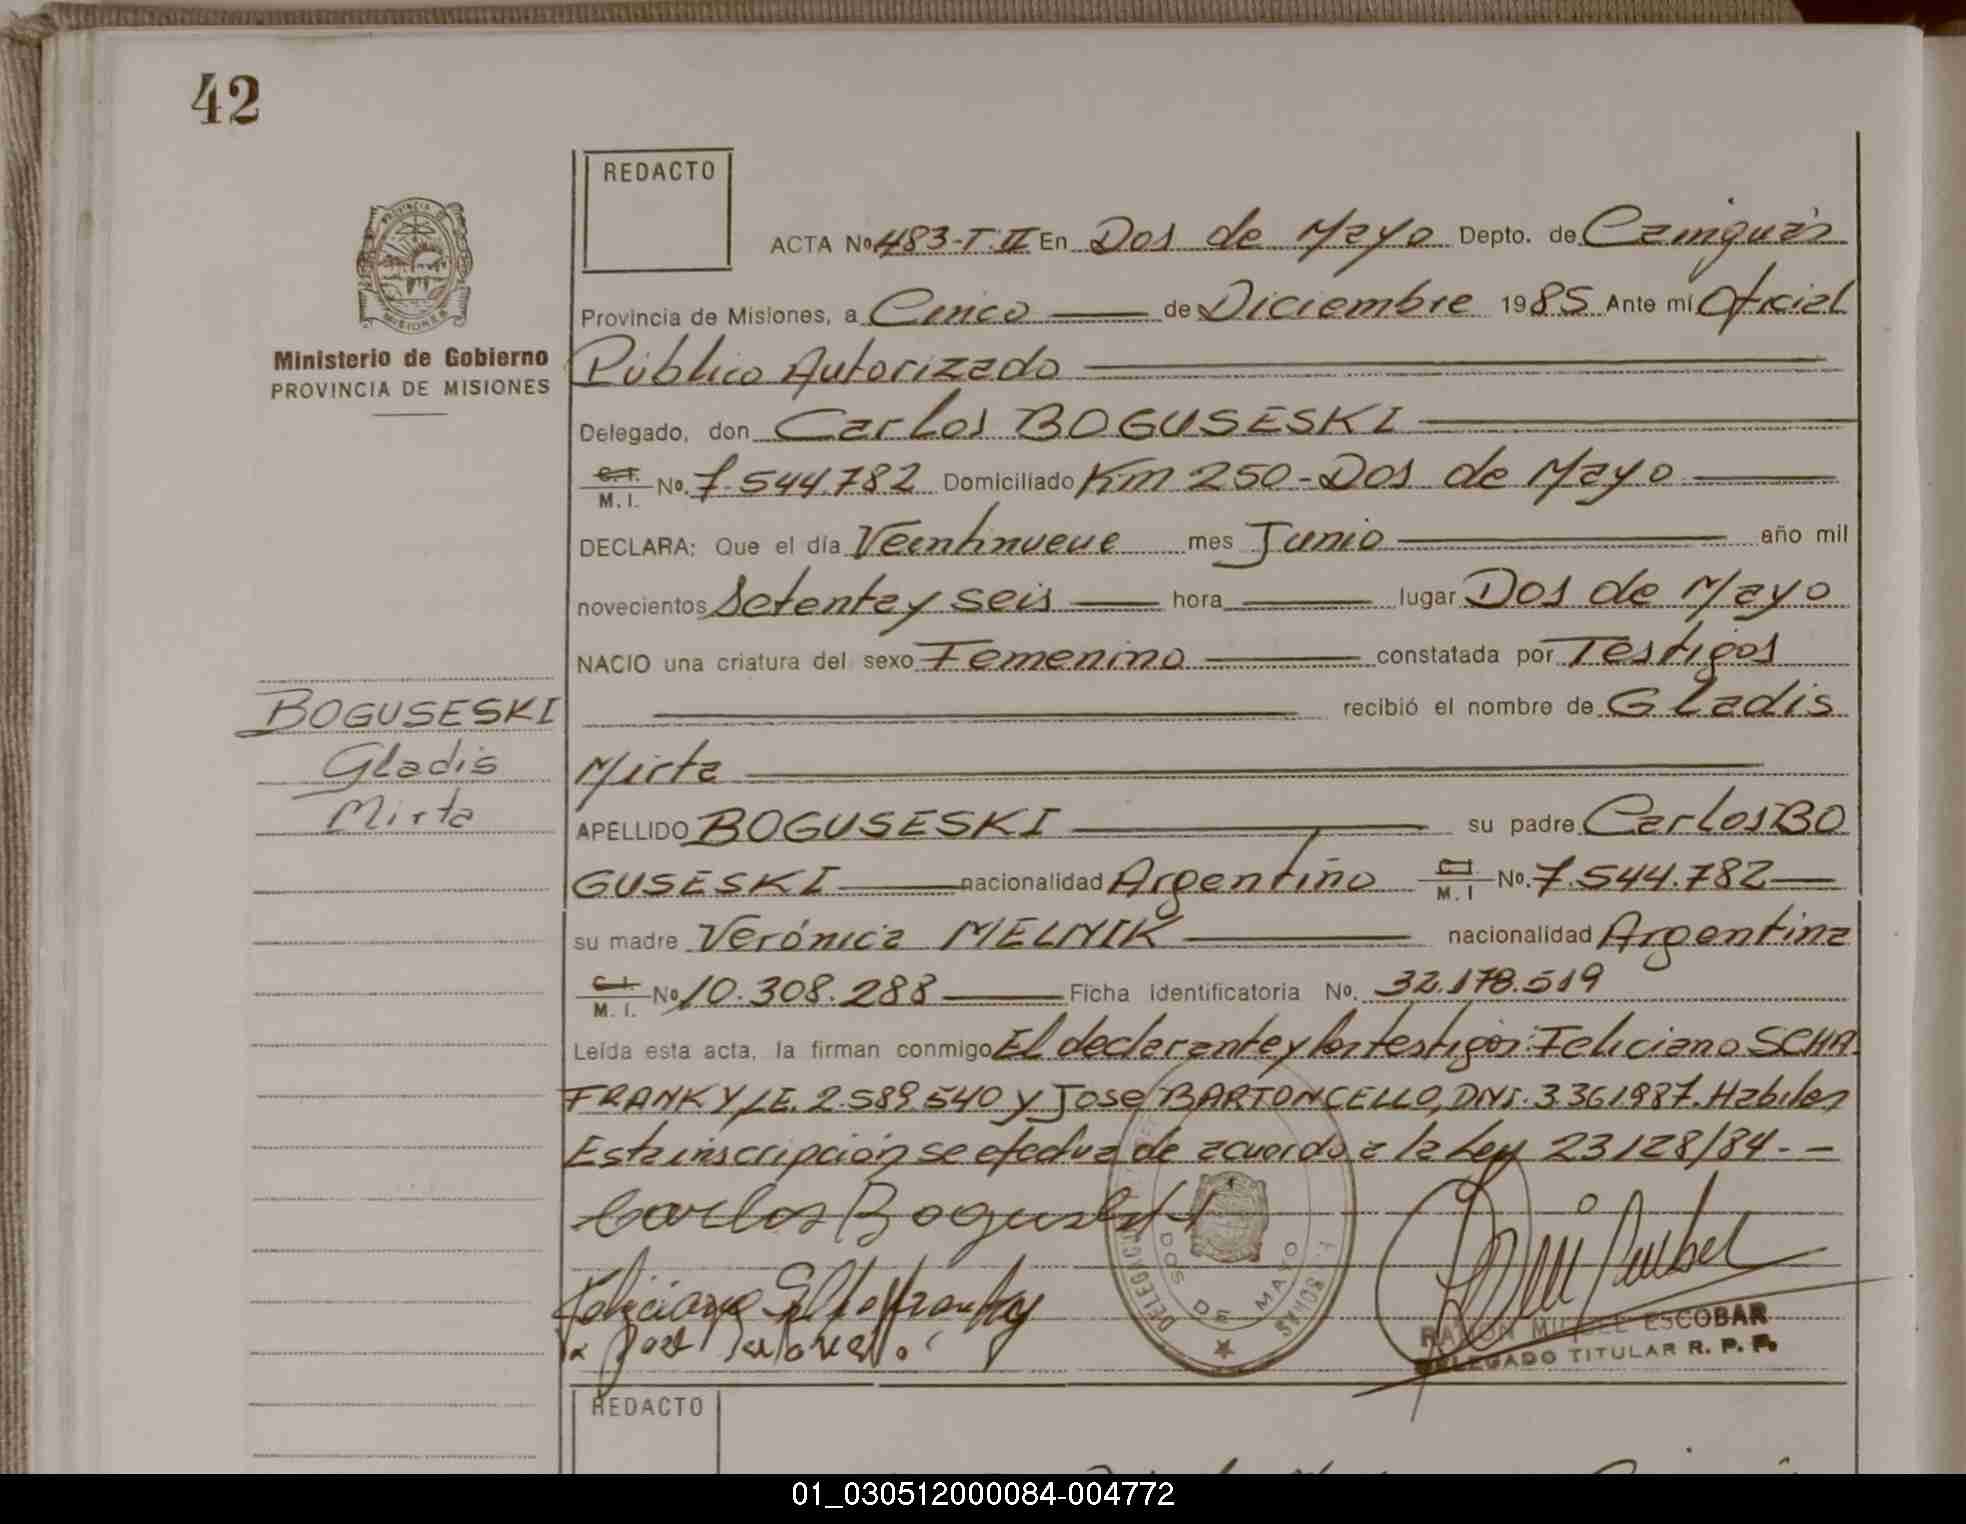 42
REDACTO
ACTA No 483-T.II En Dos de Mayo Depto. de Cainguás
PROVINCIA DE
MISIONES
Provincia de Misiones, a Cinco de Diciembre 1985 Ante mí Oficial
Ministerio de Gobierno
PROVINCIA DE MISIONES
Público Autorizado
Delegado, don Carlos BOGUSESKI
C.I.
M.I. No. 7.544.782 Domiciliado Km 250-Dos de Mayo
DECLARA: Que el día Veintinueve mes Junio año mil
novecientos Setenta y seis hora lugar Dos de Mayo
NACIO una criatura del sexo Femenino constatada por Testigos
BOGUSESKI
Gladis
Mirta
recibió el nombre de Gladis
Mirta
APELLIDO BOGUSESKI su padre Carlos BO
GUSESKI nacionalidad Argentino C.I. M.I No. 7.544.782
su madre Verónica MELNIK nacionalidad Argentina
C.I.
M.I. No 10.308.288 Ficha Identificatoria No. 32.178.519
Leída esta acta, la firman conmigo El declarante y los testigos: Feliciano SCHA
FRANKY L.E. 2.589.540 y Jose BARTONCELLO, DNI. 3361987. Habiles
Esta inscripción se efectua de acuerdo a la Ley 23128/84 - -
Carlos Boguseski
DOS DE MAYO
Feliciano
RAMON MIGUEL ESCOBAR
DELEGADO TITULAR R. P. P.
REDACTO
01_030512000084-004772